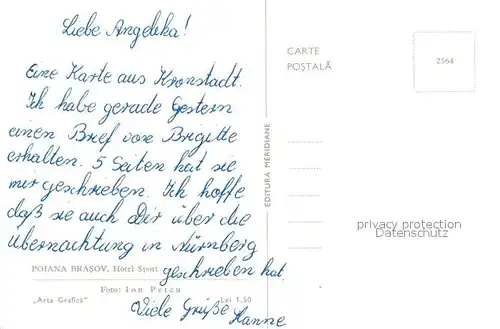 Liebe Angelika!
Eine Karte aus Kronstadt.
Ich habe gerade Gestern
einen Brief von Brigitte
erhalten. 5 Seiten hat sie
mir geschrieben. Ich hoffe
daß sie auch Dir über die
Übernachtung in Nürnberg
geschrieben hat.
Viele Grüße Hanne
POIANA BRAȘOV, Hotel Sport
Foto: Ion Petcu
„Arta Grafică”
Lei 1,50
EDITURA MERIDIANE
CARTE
POȘTALĂ
2564
privacy protection
Datenschutz